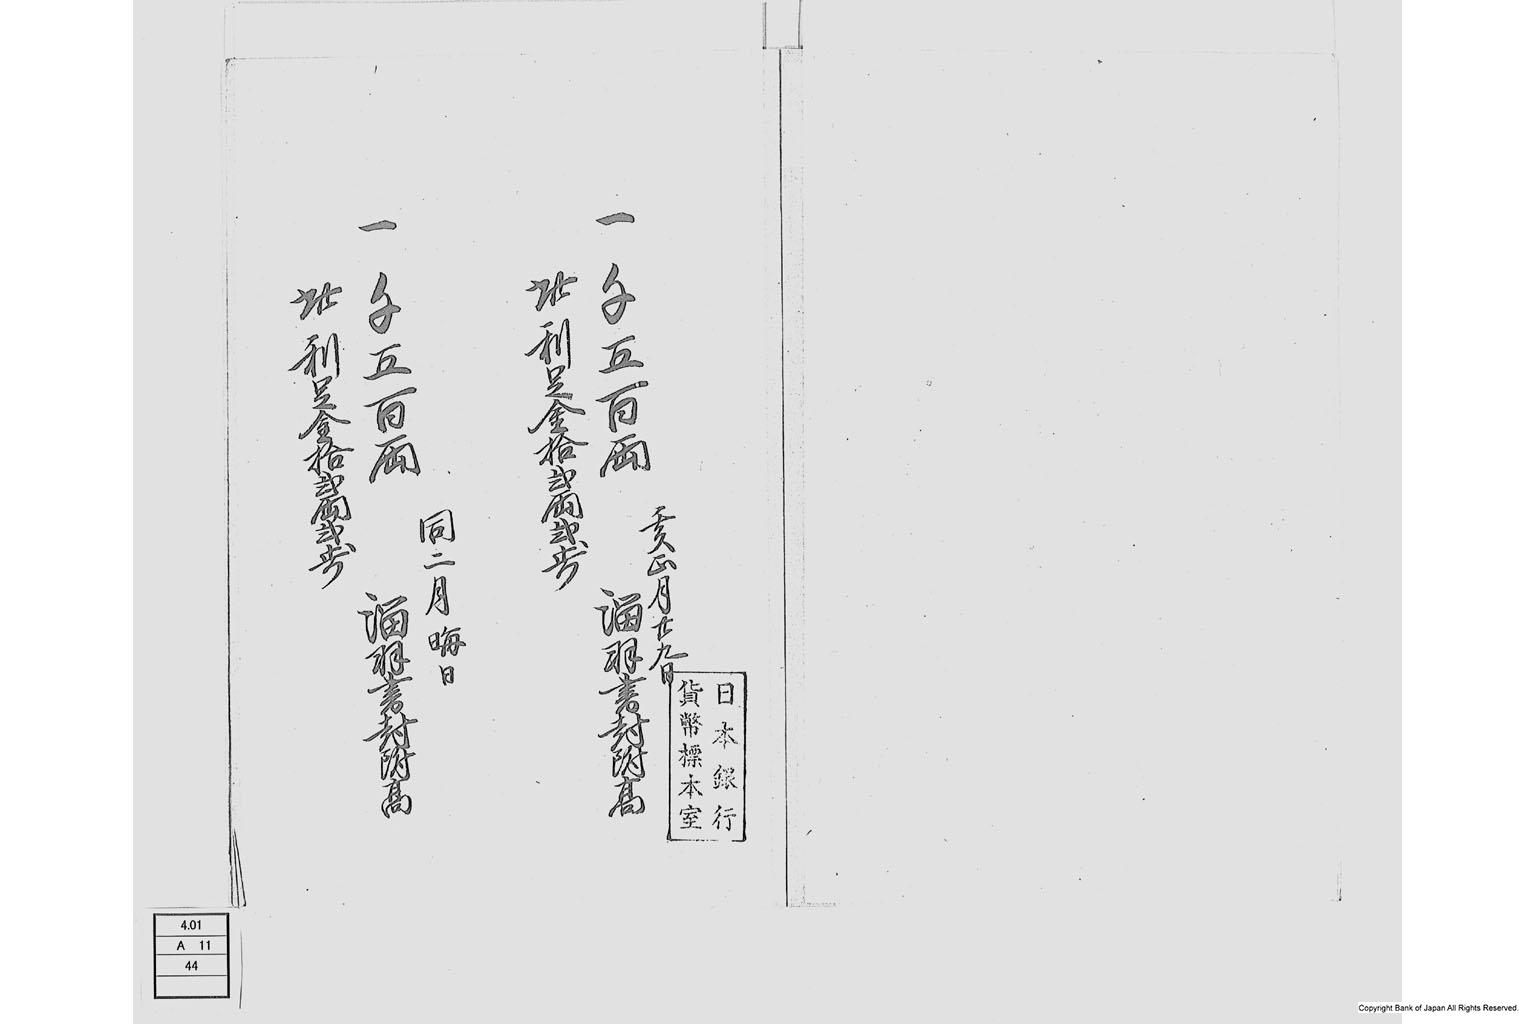 日本銀行
貨幣標本室
亥正月廿九日
一 千五百両 溜羽書封附高
此利足金拾弐両弐歩
同二月晦日
一 千五百両 溜羽書封附高
此利足金拾弐両弐歩
4.01
A 11
44
Copyright Bank of Japan All Rights Reserved.